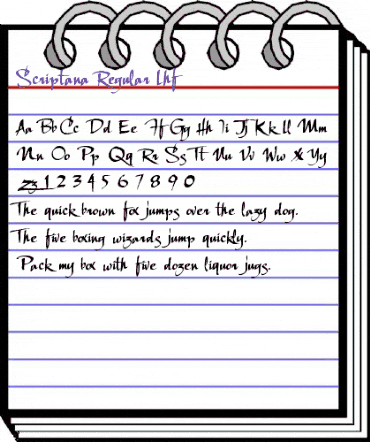 Scriptana Regular Lhf
Aa Bb Cc Dd Ee Ff Gg Hh Ii Jj Kk Ll Mm
Nn Oo Pp Qq Rr Ss Tt Uu Vv Ww Xx Yy
Zz 1 2 3 4 5 6 7 8 9 0
The quick brown fox jumps over the lazy dog.
The five boxing wizards jump quickly.
Pack my box with five dozen liquor jugs.